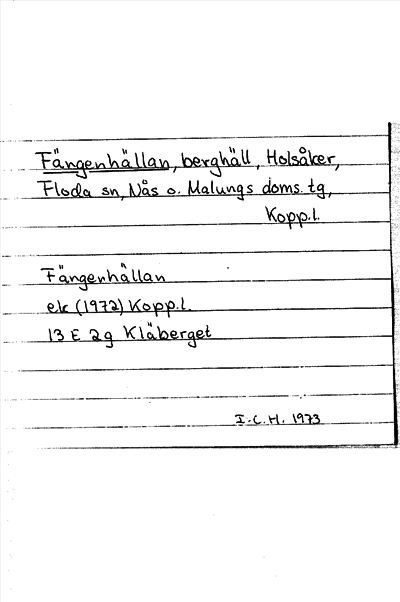 Fängenhällan, berghäll, Holsåker,
Floda sn, Nås o. Malungs doms. tg,
Kopp.l.
Fängenhällan
ek (1972) Kopp.l.
13 E 2g Klåberget
I.C.H. 1973